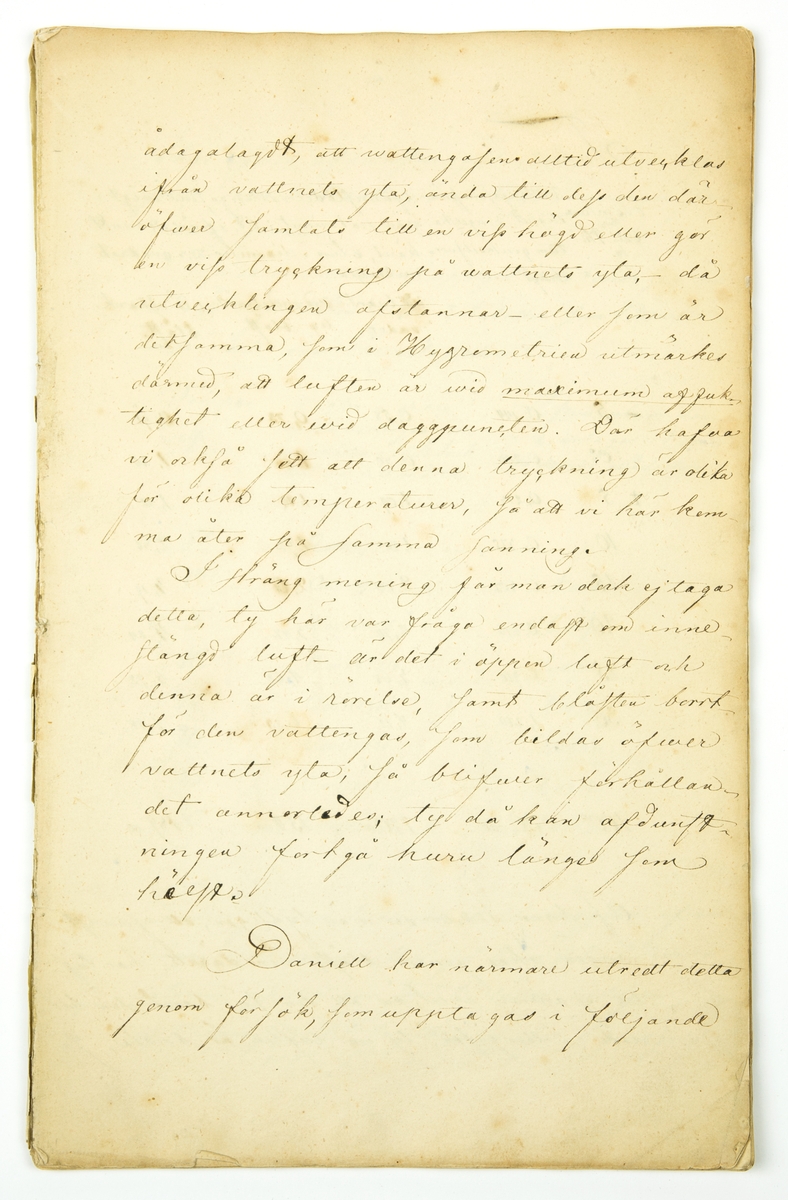 ådagalagdt, att wattengasen alltid utvecklas
ifrån vattnets yta, ända till dess den där-
öfwer samlats till en viss högd eller gör
en viss tryckning på wattnets yta, – då
utvecklingen afstannar – eller som är
detsamma, som i Hygrometrien utmärkes
därmed, att luften är wid maximum af fuk-
tighet eller wid daggpuncten. Där hafva
vi också sett att denna tryckning är olika
för olika temperaturer, så att vi här kom
ma åter på samma sanning.
I sträng mening får man dock ej taga
detta, ty här var fråga endast om inne-
stängd luft – är det i öppen luft och
denna är i rörelse, samt blåsten borrt-
för den vattengas, som bildas öfwer
vattnets yta, så blifwer förhållan-
det annorledes; ty då kan afdunst-
ningen fortgå huru länge som
hälst.
Daniell har närmare utredt detta
genom försök, som upptagas i följande